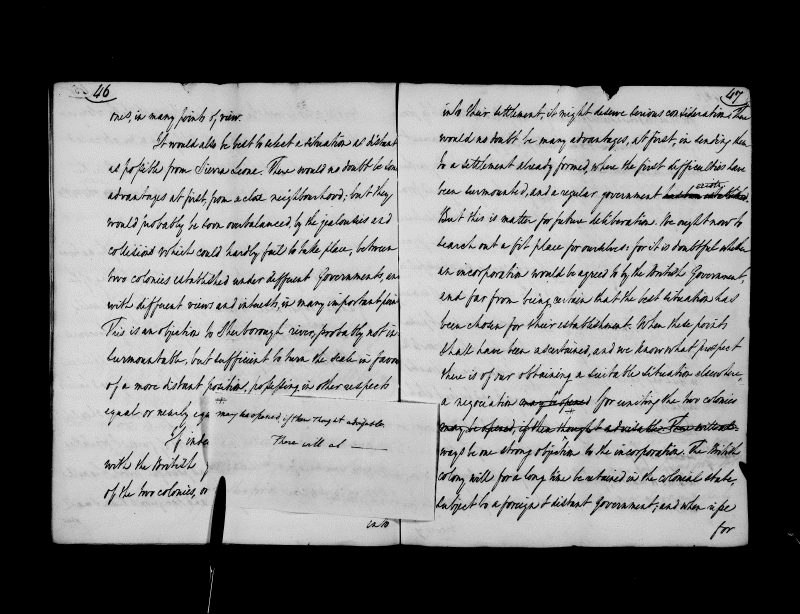 46
ones, in many points of view.
It would also be best to select a situation as distant
as possible from Sierra Leone. There would no doubt be some
advantages at first, from a close neighbourhood; but they
would probably be even overbalanced, by the jealousies and
collisions which could hardly fail to take place, between
two colonies established under different Governments, and
with different views and interests, in many important points.
This is an objection to Sherborough river, probably not in-
surmountable, but sufficient to turn the scale in favour
of a more distant position, possessing in other respects
equal or nearly equ
If inde
with the British
of the two colonies, or
into
+ may be opened, if then thought adviseable.
There will al
47
into their settlement, it might deserve serious consideration. There
would no doubt be many advantages, at first, in sending them
to a settlement already formed, where the first difficulties have
been surmounted, and a regular government exists. had been established.
But this is matter for future deliberation. We ought now to
search out a fit place for ourselves: for it is doubtful whether
an incorporation would be agreed to by the British Government,
and far from being certain that the best situation has
been chosen for their establishment. When these points
shall have been ascertained, and we know what prospect
there is of our obtaining a suitable situation elsewhere,
a negociation may be opened for uniting the two colonies
+
may be opened, if then thought adviseable. There will al-
ways be one strong objection to the incorporation. The British
colony will for a long time be retained in the colonial state,
subject to a foreign & distant Government; and when
for